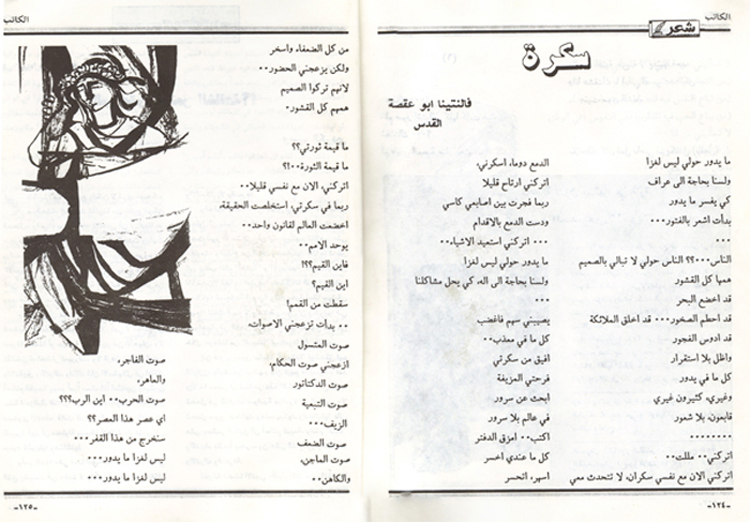 الكاتب
شعر
سكرة
فالنتينا ابو عقصة
القدس
ما يدور حولي ليس لغزا
ولسنا بحاجة الى عراف
كي يفسر ما يدور
بدأت اشعر بالفتور...
...
الناس...؟؟ الناس حولي لا تبالي بالصميم
همها كل القشور
قد اخضع البحر
قد احطم الصخور... قد اخلق الملائكة
قد ادوس الفجور
واظل بلا استقرار
كل ما في يدور
وغيري، كثيرون غيري
قابعون، بلا شعور
........
اتركني.. مللت..
اتركني الان مع نفسي سكران، لا تتحدث معي
الدمع دوما، اسكرني،
اتركني ارتاح قليلا
ربما فجرت بين اصابعي كاسي
ودست الدمع بالاقدام
... اتركني استعيد الاشياء..
ما يدور حولي ليس لغزا
ولسنا بحاجة الى اله، كي يحل مشاكلنا
...
يصيبني سهم فاغضب
كل ما في معذب..
افيق من سكرتي
فرحتي المزيفة
ابحث عن سرور
في عالم بلا سرور
اكتب.. امزق الدفتر
كل ما عندي اخسر
اسهر، انحسر
-١٢٤-
الكاتب
من كل الضعفاء واسخر
ولكن يزعجني الحضور..
لانهم تركوا الصميم
همهم كل القشور.
ما قيمة ثورتي؟؟
ما قيمة الثورة..؟!
اتركني، الان مع نفسي قليلا..
ربما في سكرتي، استخلصت الحقيقة،
اخضعت العالم لقانون واحد..
يوحد الامم..
فاين القيم؟؟!
اين القيم؟
سقطت من القمم!
.. بدأت تزعجني الاصوات،
صوت المتسول
ازعجني صوت الحكام،
صوت الدكتاتور
صوت التبعية
الزيف...
صوت الضعف
صوت الماجن،
والكاهن..
صوت الفاجر،
والعاهر،
صوت الحرب.. اين الرب؟؟؟
اي عصر هذا العصر؟؟
سنخرج من هذا القفر...
ليس لغزا ما يدور...
ليس لغزا ما يدور...
-١٢٥-